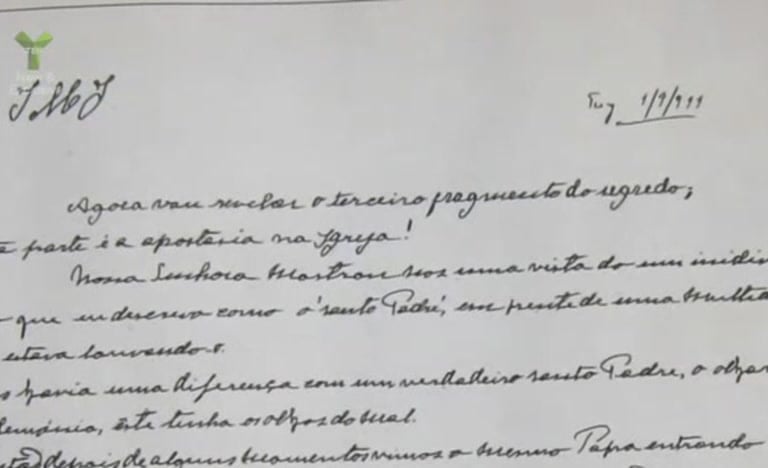 JMJ
Tuy 1/9/1944
Agora vou revelar o terceiro fragmento do segredo;
parte é a apostasia na Igreja!
Nossa Senhora mostrou nos uma vista do um
que eu descrevo como o 'santo Padre', em frente de uma multi
estava louvando-o.
havia uma diferença com um verdadeiro santo Padre, o olhar
demónio, êste tinha os olhos do mal.
depois de alguns momentos vimos o mesmo Papa entrando